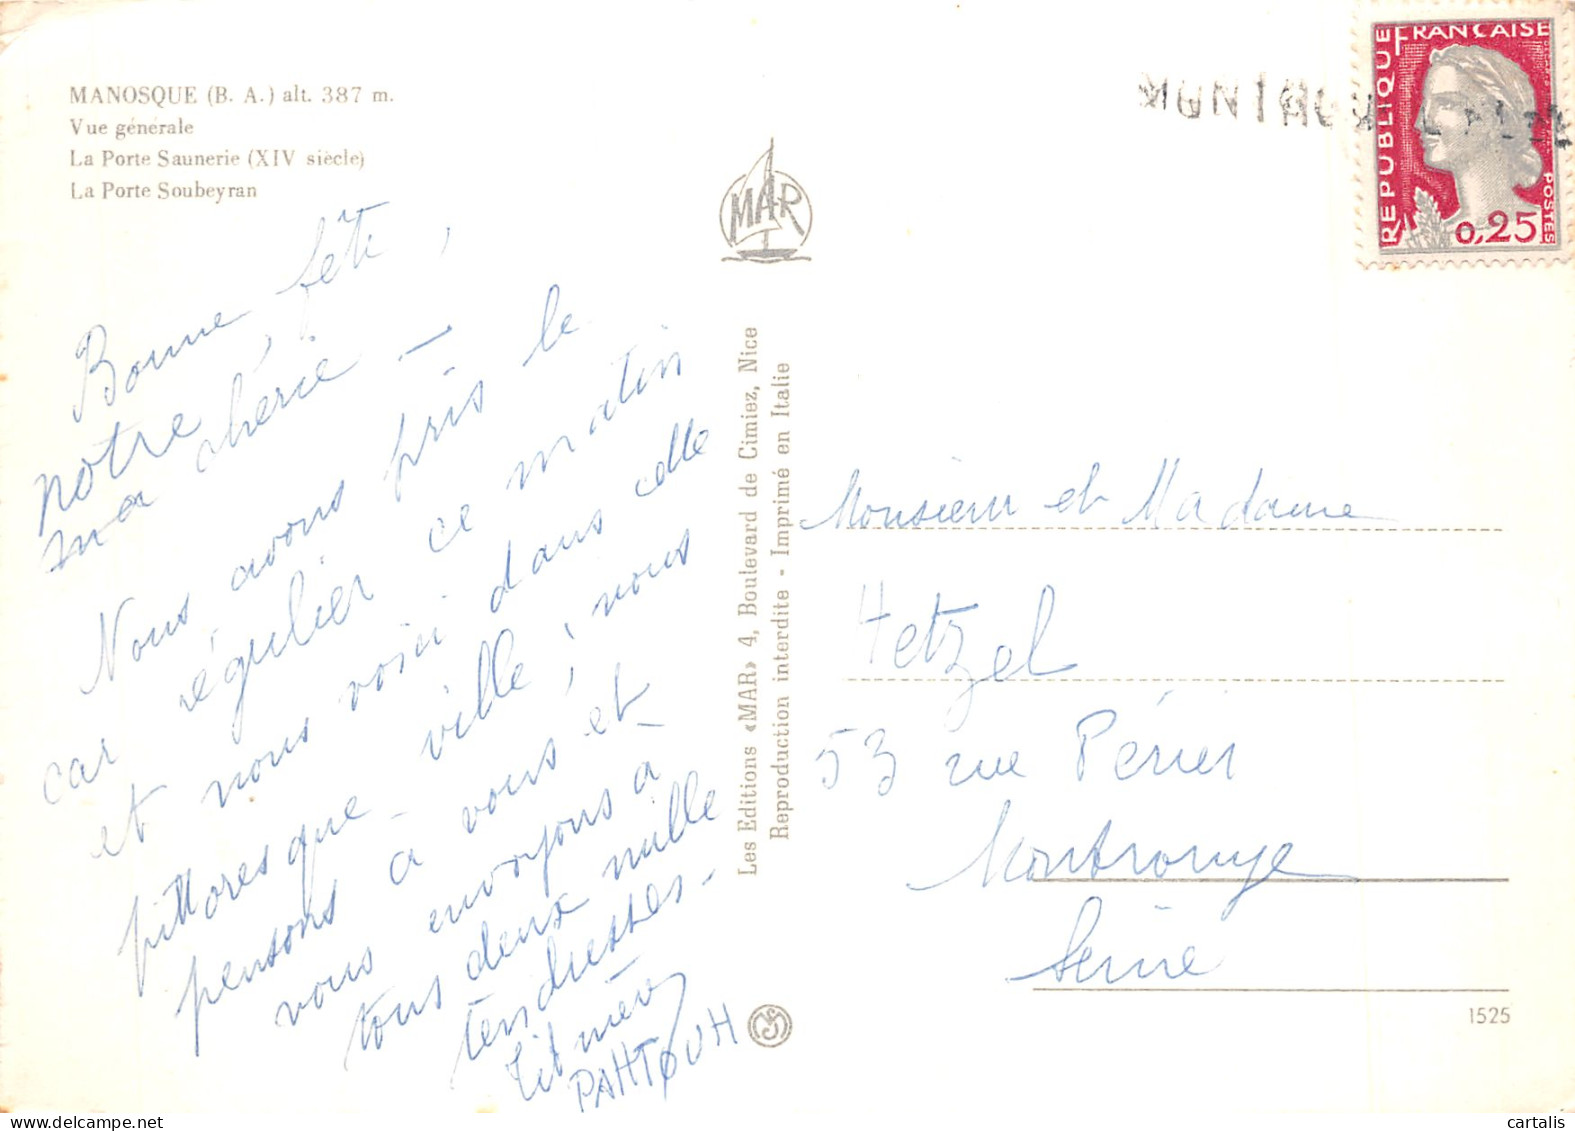 MANOSQUE (B. A.) alt. 387 m.
Vue générale
La Porte Saunerie (XIV siècle)
La Porte Soubeyran
Bonne fête,
notre
ma chérie -
Nous avons pris le
car régulier ce matin
et nous voici dans cette
pittoresque ville, nous
pensons à vous et
vous envoyons à
tous deux mille
tendresses -
PAHTOUH
MAR
Les Editions «MAR» 4, Boulevard de Cimiez, Nice
Reproduction interdite - Imprimé en Italie
REPUBLIQUE FRANÇAISE
POSTES
0,25
Monsieur et Madame
Hetzel
53 rue Périer
Montrouge
Seine
1525
cartalis